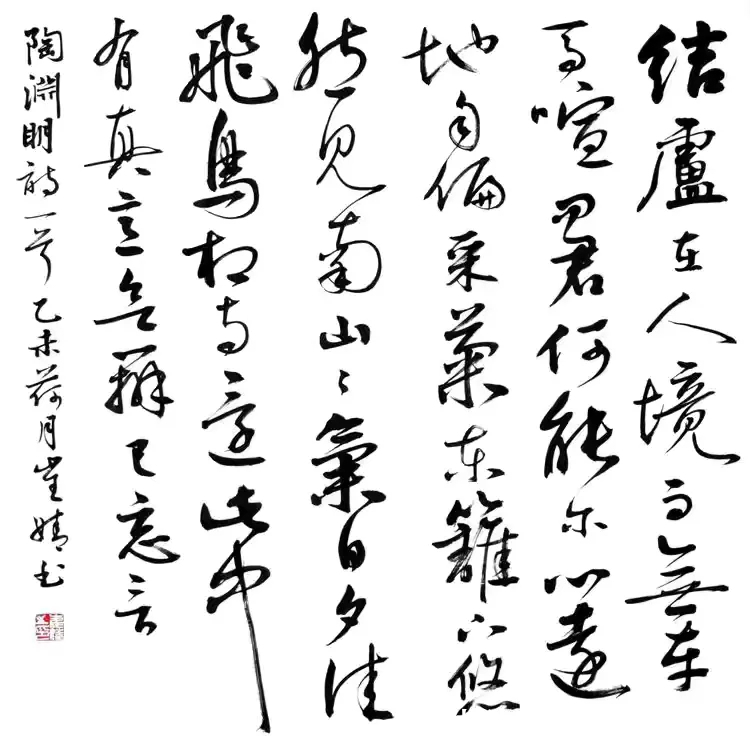 結盧在人境而無車
馬喧問君何能尔心遠
地自偏采菊東籬下悠
然見南山〻氣日夕佳
飛鳥相與還此中
有真意欲辨已忘言
陶淵明詩一首乙未荷月崔婧书